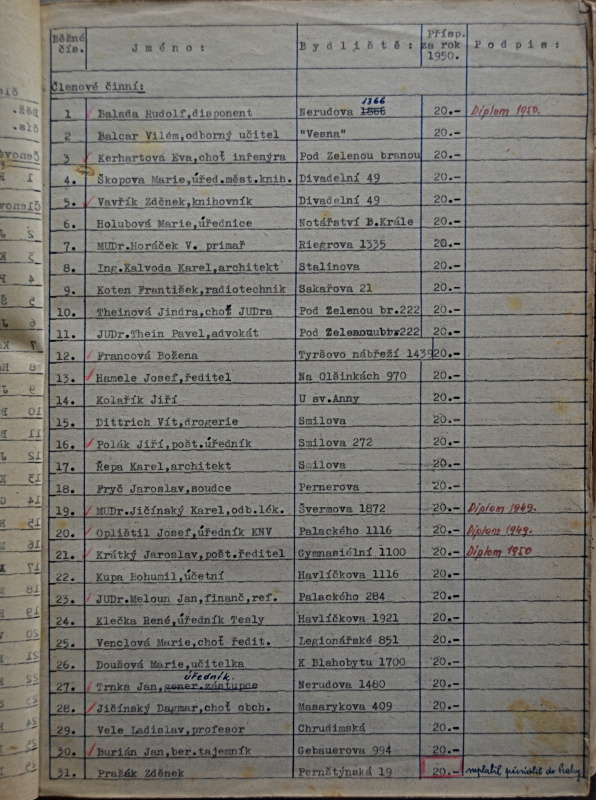 Běžné Přísp.
čís. Jméno: Bydliště: za rok Podpis:
1950.
Členové činní:
1366
1 Balada Rudolf,disponent Nerudova 1866 20.- Diplom 1950.
2 Balcar Vilém,odborný učitel "Vesna" 20.-
3 Kerhartová Eva,choť inženýra Pod Zelenou branou 20.-
4. Škopova Marie,úřed.měst.knih. Divadelní 49 20.-
5. Vavřík Zděnek,knihovník Divadelní 49 20.-
6. Holubová Marie,úřednice Notářství B.Krále 20.-
7. MUDr.Horáček V. primař Riegrova 1335 20.-
8. Ing.Kalvoda Karel,architekt Stalinova 20.-
9. Koten František,radiotechnik Sakařova 21 20.-
10. Theinová Jindra,choť JUDra Pod Zelenou br.222 20.-
11. JUDr.Thein Pavel,advokát Pod 20.-
12. Francová Božena Tyršovo nábřeží 1439 20.-
13. Hamele Josef,ředitel Na Olšinkách 970 20.-
14. Kolařík Jiří U sv.Anny 20.-
15. Dittrich Vít,drogerie Smilova 20.-
16. Polák Jiří,pošt.úředník Smilova 272 20.-
17. Řepa Karel,architekt Smilova 20.-
18. Fryč Jaroslav,soudce Pernerova 20.-
19. MUDr.Jičínský Karel,odb.lék. Švermova 1872 20.- Diplom 1949.
20. Oplištil Josef,úředník KNV Palackého 1116 20.- Diplom 1949.
21. Krátký Jaroslav,pošt.ředitel Gymnasiální 1100 20.- Diplom 1950
22. Kupa Bohumil,účetní Havlíčkova 1116 20.-
23. JUDr.Meloun Jan,finanč,ref. Palackého 284 20.-
24. Klečka René,úředník Tesly Havlíčkova 1921 20.-
25. Venclová Marie,choť ředit. Legionářské 851 20.-
26. Doušová Marie,učitelka K Blahobytu 1700 20.-
úředník.
27. Trnka Jan,gener.zástupce Nerudova 1480 20.-
28. Jičínský Dagmar,choť obch. Masarykova 409 20.-
29. Vele Ladislav,profesor Chrudimská 20.-
30. Burián Jan,ber.tajemník Gebauerova 994 20.-
31. Pražák Zděnek Pernštýnská 19 20.- do Prahy